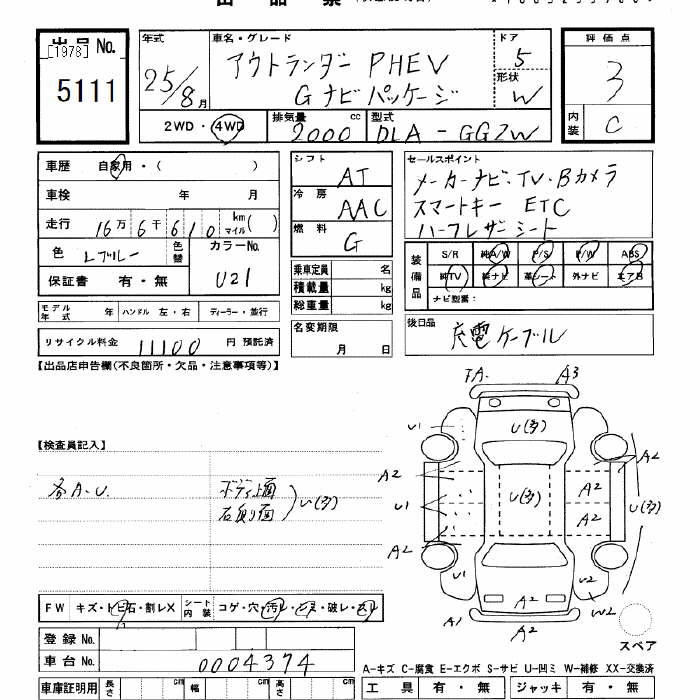 [1978]
出品 No.
5111
年式
25/8月
車名・グレード
アウトランダー PHEV
G ナビパッケージ
ドア
5
形状
W
評価点
3
内装
C
2WD・4WD
排気量 cc
2000
型式
DLA-GG2W
車歴 自家用・( )
車検 年 月
走行 16万6千610 km マイル( )
色 Lブルー
色替
カラーNo.
U21
保証書 有・無
モデル年式 年 ハンドル 左・右 ディーラー・並行
リサイクル料金 11100 円 預託済
シフト
AT
冷房
AAC
燃料
G
乗車定員 名
積載量 kg
総重量 kg
名変期限
月 日
セールスポイント
メーカーナビ・TV・Bカメラ
スマートキー ETC
ハーフレザーシート
装備品
S/R 純A/W P/S P/W ABS
純TV 純ナビ 革シート 外ナビ エアB
ナビ型番:
後日品
充電ケーブル
【出品店申告欄(不良箇所・欠品・注意事項等)】
【検査員記入】
各A・U.
ボディ上面
石刎り面
U(多)
A3
U(多)
U1
A2
A2
U(多)
A2
U1
A2
U(多)
A2
U1
U2
A2
W2
A1
A2
スペア
FW キズ・トビ石・割レX
シート内装
コゲ・穴・汚レ・破レ・スレ
登録 No.
車台 No.
0004374
車庫証明用 長さ cm 幅 cm 高さ cm
A-キズ C-腐食 E-エクボ S-サビ U-凹ミ W-補修 XX-交換済
工具 有・無 ジャッキ 有・無